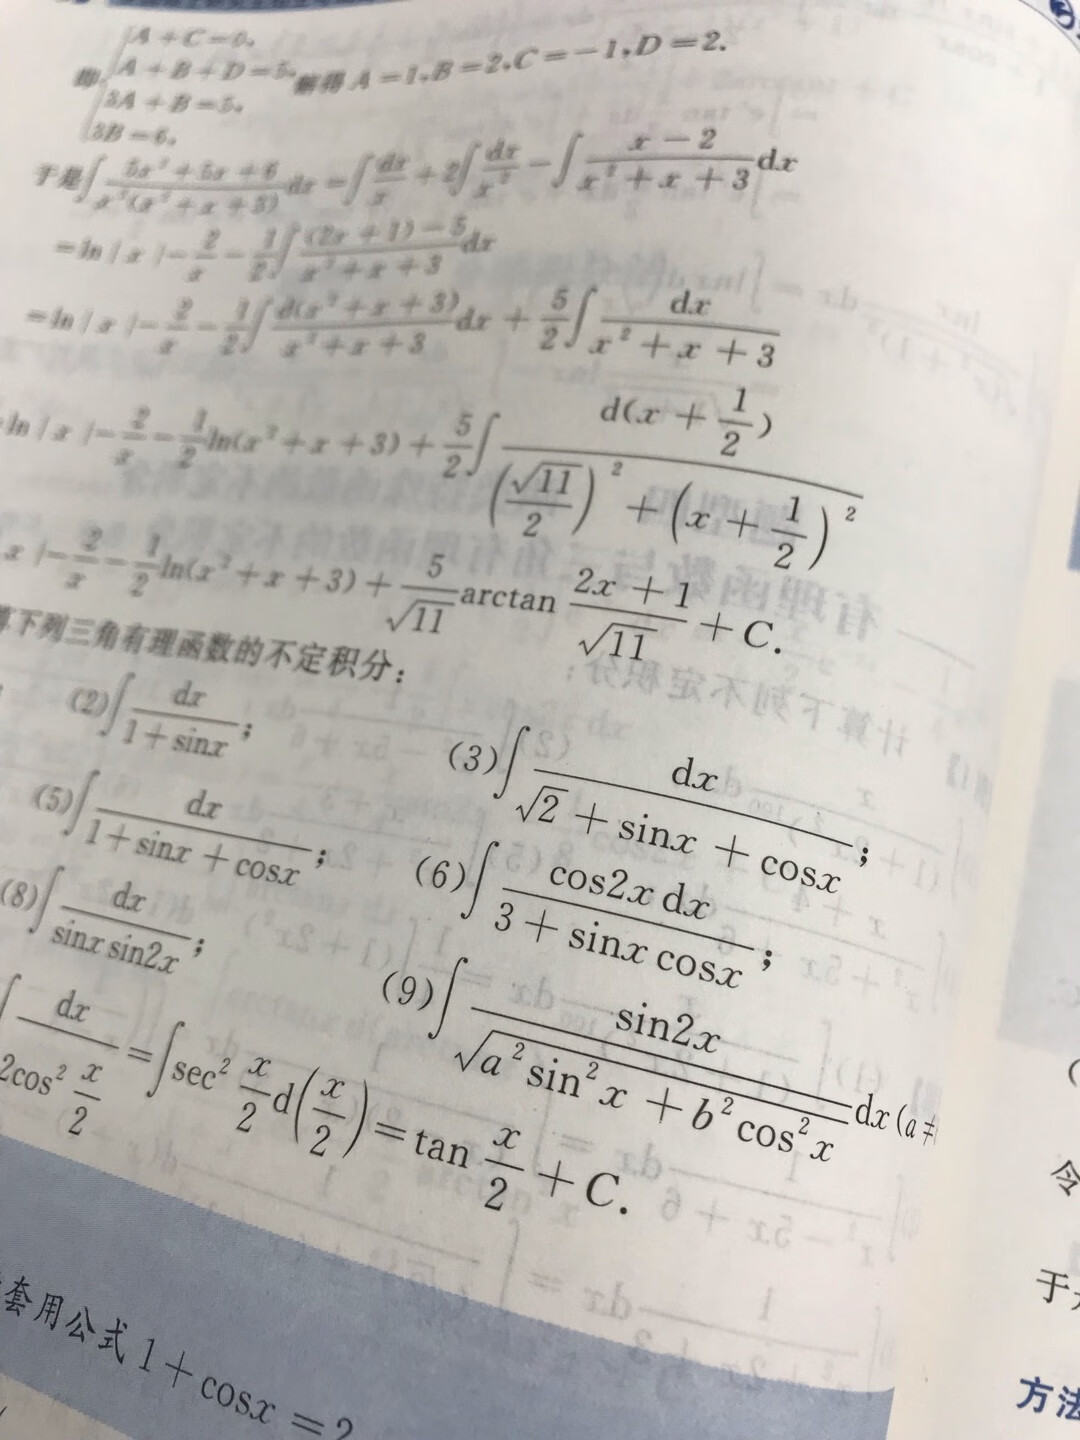 A+C=0,
A+B+D=5,
3A+B=5,
3B=6,
即 解得 A=1,B=2,C=-1,D=2.
于是∫(5x²+5x+6)/(x²(x²+x+3))dx=∫dx/x+2∫dx/x²-∫(x-2)/(x²+x+3)dx
=ln|x|-2/x-1/2∫((2x+1)-5)/(x²+x+3)dx
=ln|x|-2/x-1/2∫d(x²+x+3)/(x²+x+3)dx+5/2∫dx/(x²+x+3)
=ln|x|-2/x-1/2ln(x²+x+3)+5/2∫d(x+1/2)/((√11/2)²+(x+1/2)²)
x|-2/x-1/2ln(x²+x+3)+5/√11 arctan (2x+1)/√11+C.
算下列三角有理函数的不定积分:
(2)∫dx/(1+sinx); (3)∫dx/(√2+sinx+cosx);
(5)∫dx/(1+sinx+cosx); (6)∫cos2x dx/(3+sinx cosx);
(8)∫dx/(sinx sin2x); (9)∫sin2x/√(a²sin²x+b²cos²x)dx(a≠
∫dx/(2cos² x/2)=∫sec² x/2 d(x/2)=tan x/2+C.
套用公式1+cosx=2
(
令
于
方法